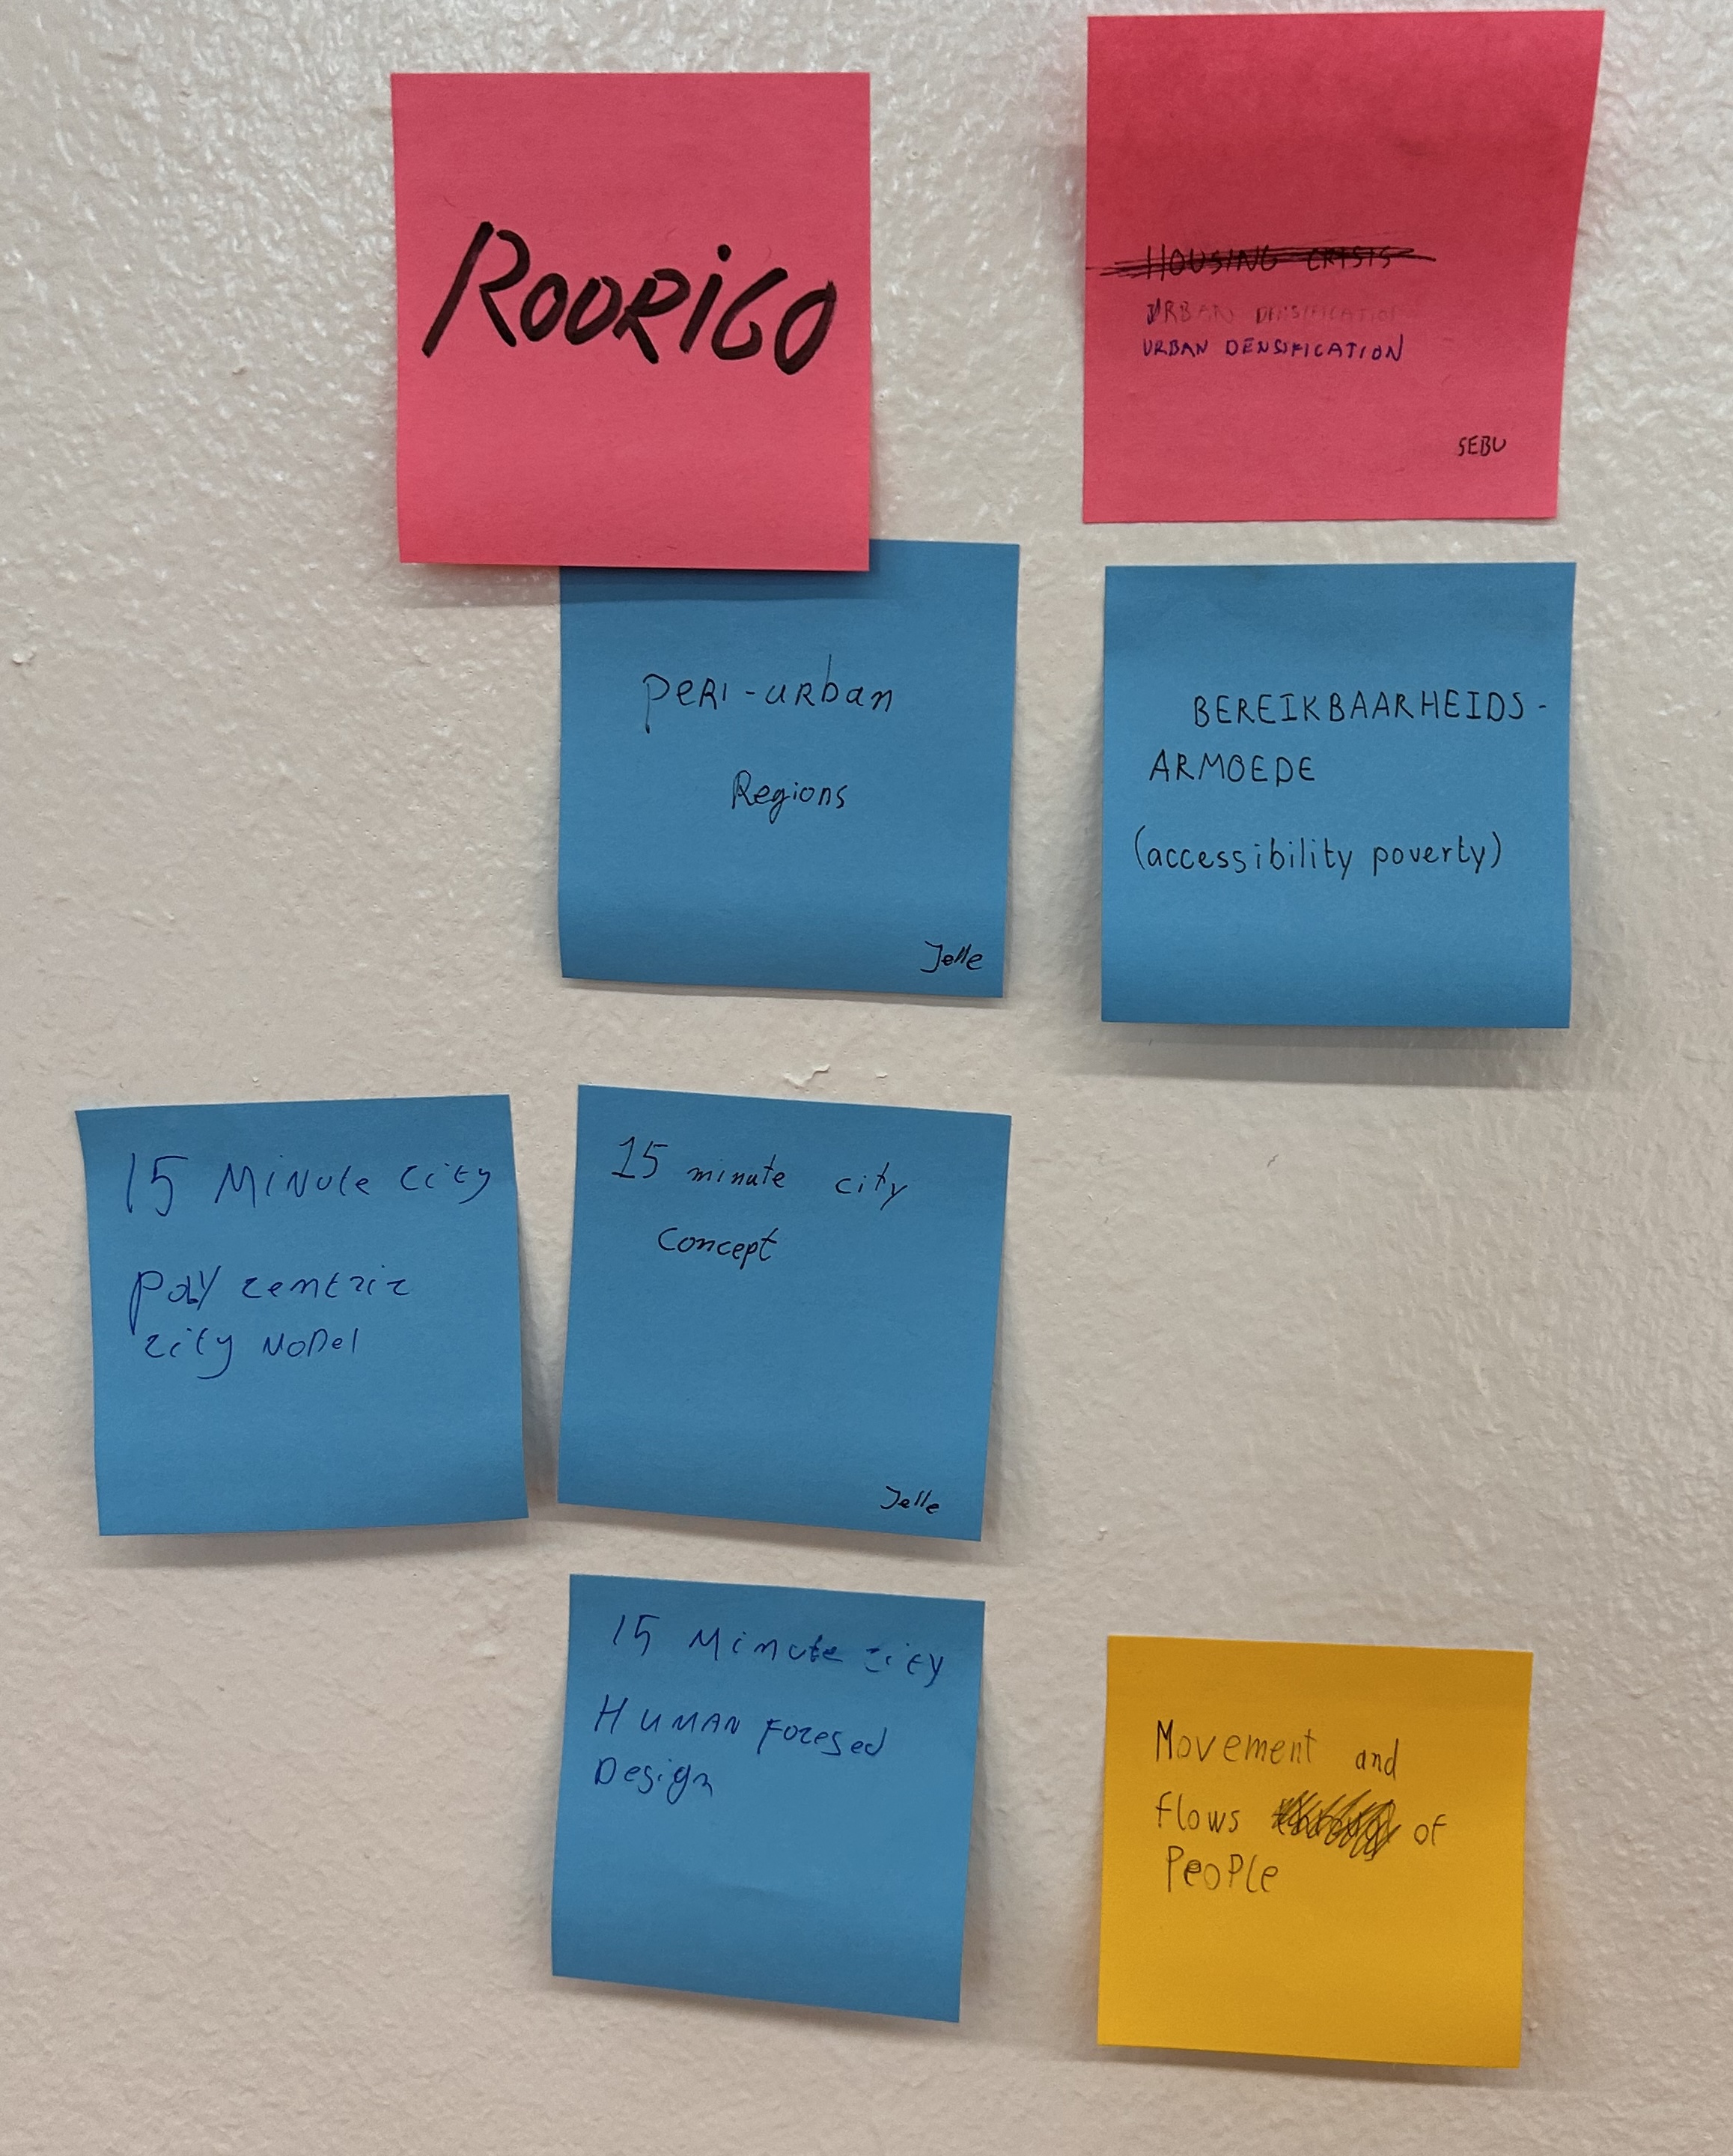 RODRIGO
HOUSING CRISIS
URBAN DENSIFICATION
URBAN DENSIFICATION
SEBU
PERI-urban
Regions
Jelle
BEREIKBAARHEIDS-
ARMOEDE
(accessibility poverty)
15 Minute city
poly centric
city model
15 minute city
concept
Jelle
15 Minute city
HUMAN Focesed
Design
Movement and
flows of
People